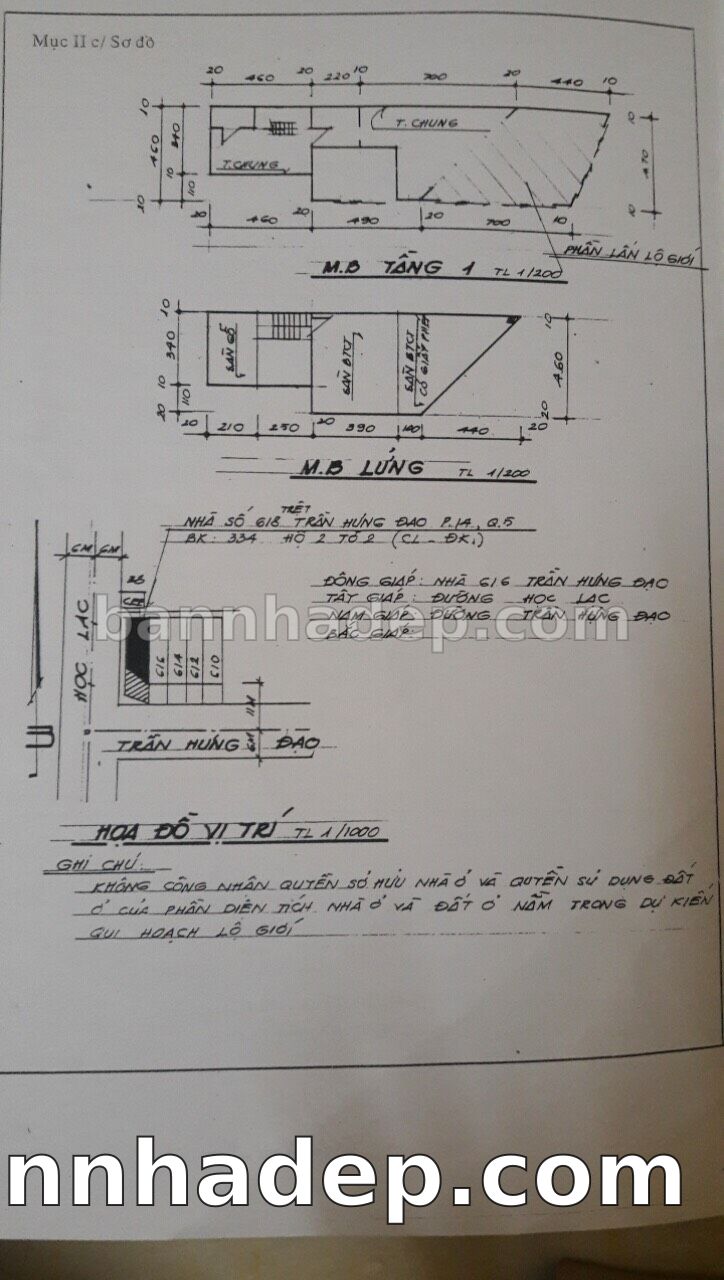 Mục II c/ Sơ đồ
20 460 20 220 10 700 20 440 10
10 340 10 110
460 20
T. CHUNG
T. CHUNG
10 470 10
20 460 20 490 20 700 10
PHẦN LẤN LỘ GIỚI
M.B TẦNG 1 TL 1/200
10 340 10 110 20
SÀN GỖ
SÀN BTCT
SÀN BTCT
CÓ GIẤY PHÉP
10 460 20
20 210 250 20 390 100 440 20
M.B LỬNG TL 1/200
TRỆT
NHÀ SỐ 618 TRẦN HƯNG ĐẠO P.14, Q.5
BK: 334 HỘ 2 TỔ 2 (CL-ĐK1)
6M 6M
ĐÔNG GIÁP: NHÀ 616 TRẦN HƯNG ĐẠO
TÂY GIÁP: ĐƯỜNG HỌC LẠC
NAM GIÁP ĐƯỜNG TRẦN HƯNG ĐẠO
BẮC GIÁP:
bannhadep.com
HỌC LẠC
616 614 612 610
11M
6M
TRẦN HƯNG ĐẠO
HỌA ĐỒ VỊ TRÍ TL 1/1000
GHI CHÚ:
KHÔNG CÔNG NHẬN QUYỀN SỞ HỮU NHÀ Ở VÀ QUYỀN SỬ DỤNG ĐẤT
Ở CỦA PHẦN DIỆN TÍCH NHÀ Ở VÀ ĐẤT Ở NẰM TRONG DỰ KIẾN
QUI HOẠCH LỘ GIỚI
nnhadep.com